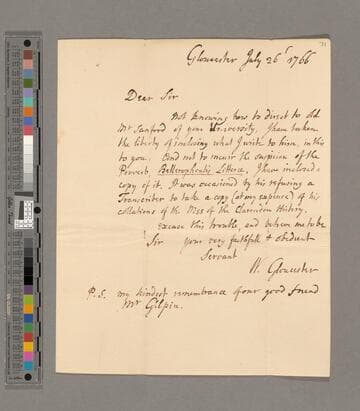 Gloucester July 26th 1766
Dear Sir
Not knowing how to direct to old
Mr Sanford of your University, I have taken
the liberty of inclosing what I write to him, in this
to you. And not to incurr the suspicion of the
Proverb, Bellerophontis Litteræ, I have inclosed a
copy of it. It was occasioned by his refusing a
Transcriber to take a copy (at my expence) of his
collations of the Mss of the Clarendon History.
Excuse this trouble, and believe me to be
Sir your very faithfull & obedient
Servant
W. Gloucester
P.S. my kindest remembrance of our good friend
Mr Gilpin.